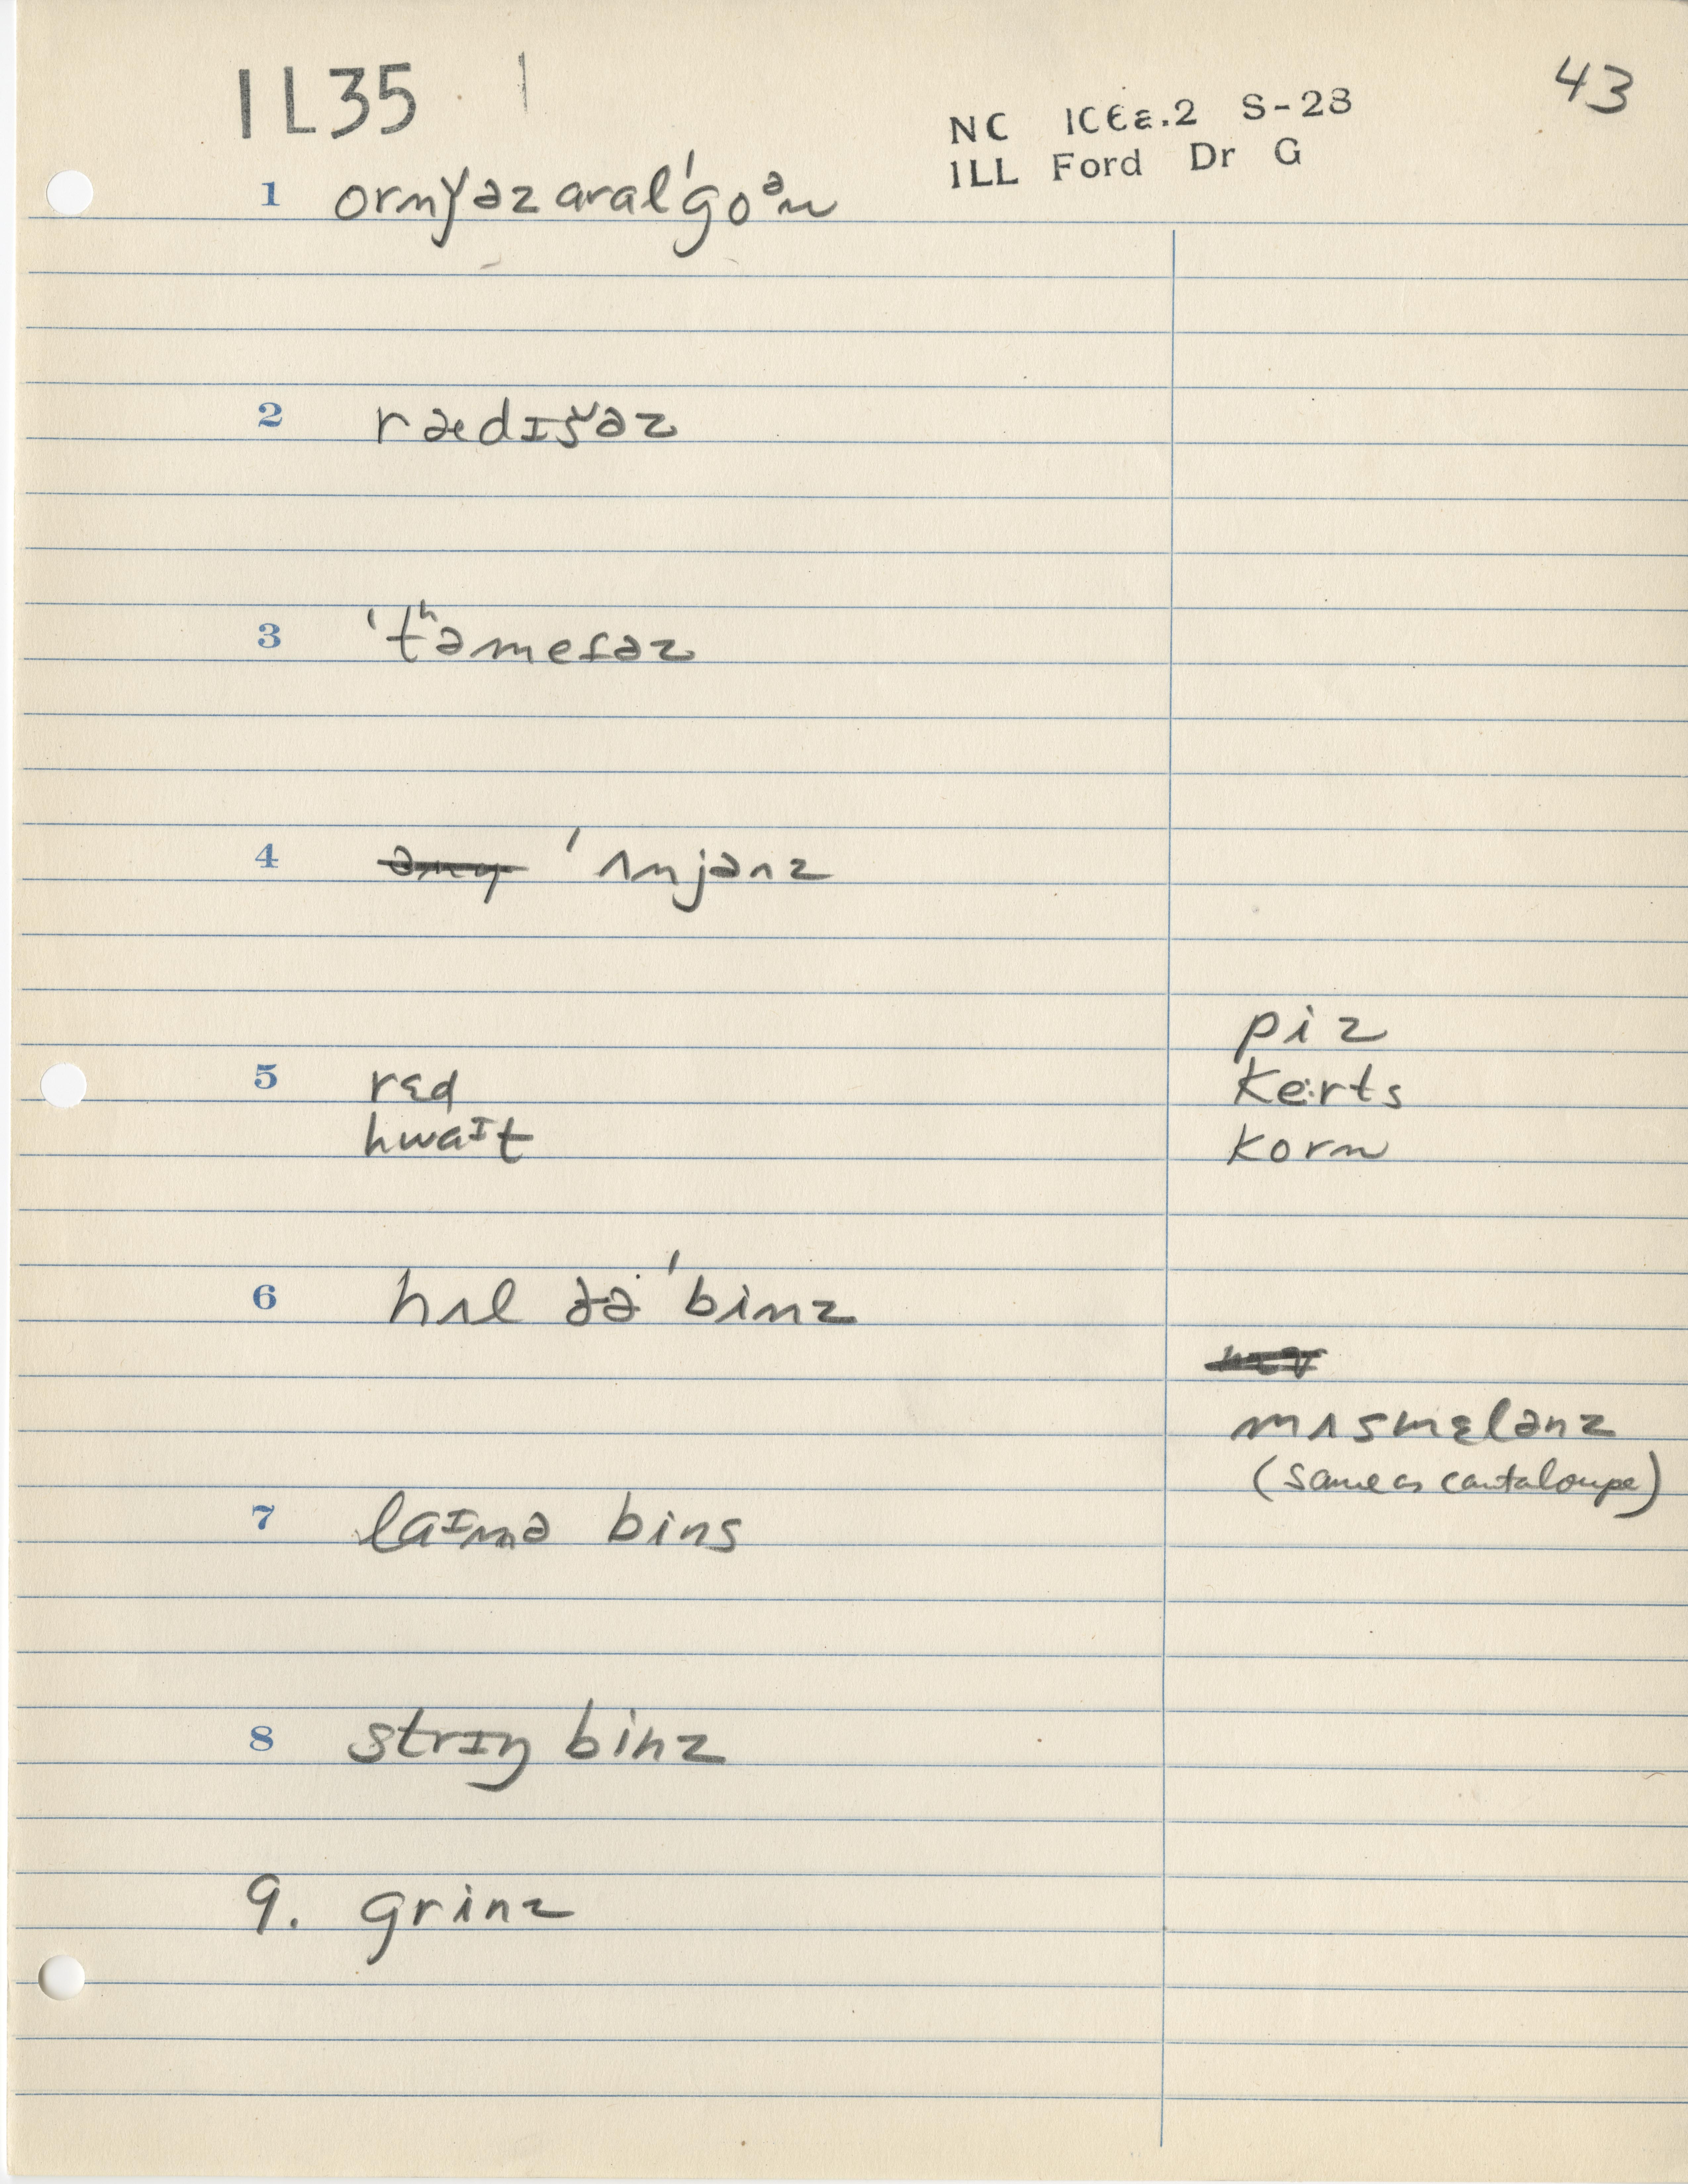 IL35
43
NC IC6a.2 S-23
ILL Ford Dr G
1 ornǰəz aral ˈgoᵊn
2 rædɪšəz
3 ˈtʰəmeɾəz
4 ˈʌnjənz
piz
5 rɛd ke:rts
hwaɪt korn
6 hʌl ðə ˈbinz
mʌsmɛlənz
(same as cantaloupe)
7 laɪmə bins
8 strɪŋ binz
9. grinz